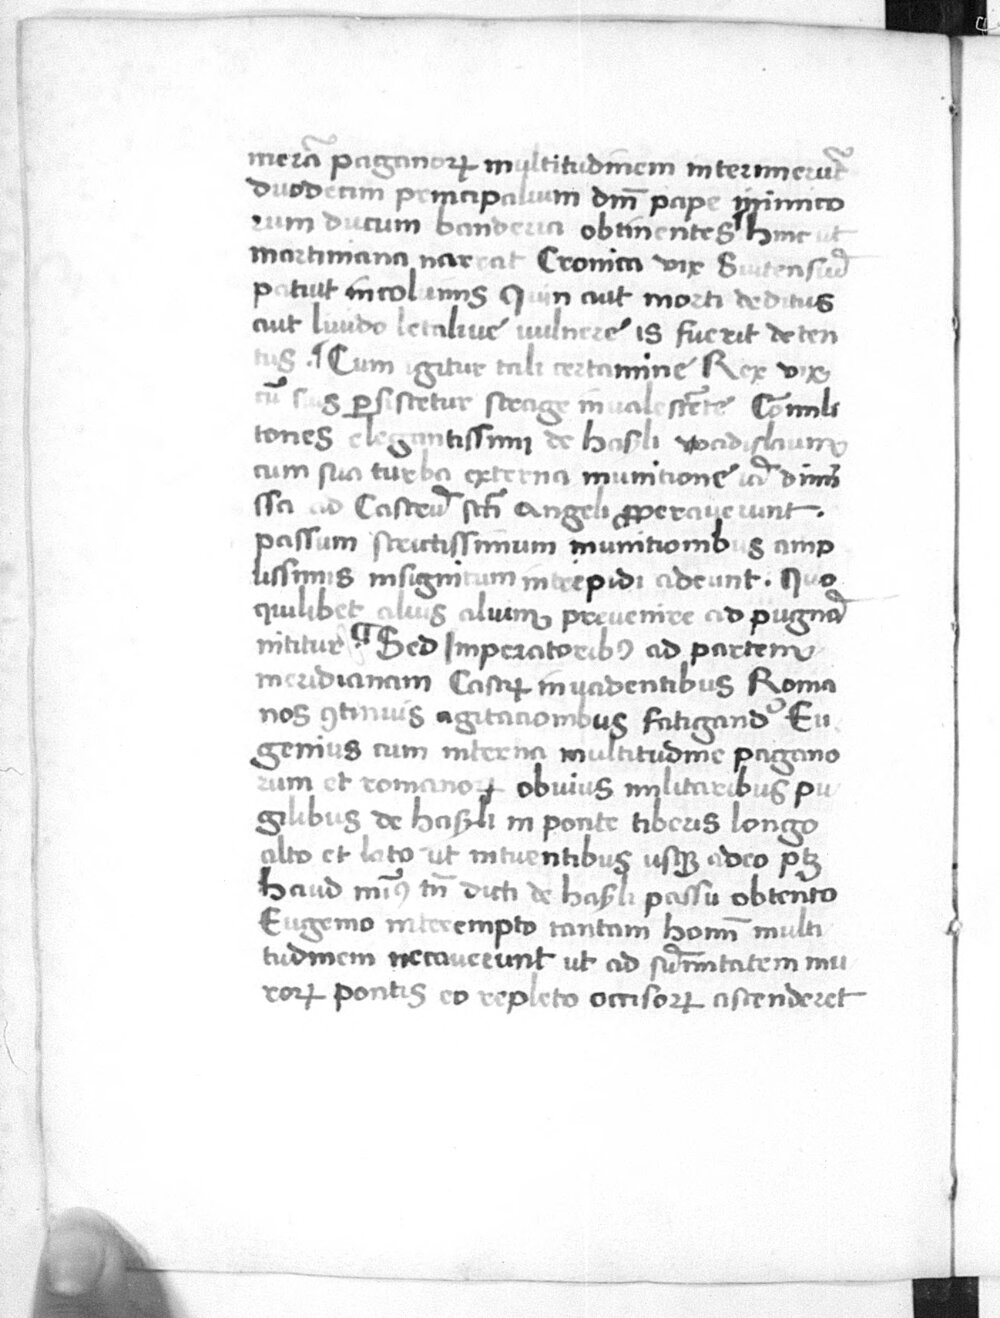 merā paganorꝝ multitudinem interimerūt
duodecim principalium dm̄ pape inimico
rum ducum banderia obtinentes hinc ut
martiniana narrat Cronica vix Suitensiū
patiut incolumis Quin aut morti deditus
aut liuido letaliue uulnere is fuerit deten
tus . ¶ Cum igitur tali certamine Rex vix
cū suis ꝑsisteretur strage inualescēte Cōmili
tones elegantissimi de hasli wadislaum
cum sua turba externa munitione iā dimi
ssa ad Castrū scti Angeli ꝓperauerunt .
passum strictissimum munitionibus amp
lissimis insignitum intrepidi adeunt . Quo
quilibet alius alium preuenire ad pugnā
nititur ¶ Sed Imperatoribꝰ ad partem
meridianam Castrꝝ inuadentibus Roma
nos ꝯtinuis agitationibus fatigandᵒ Eu
genius cum interna multitudine pagano
rum et romanorꝝ obuius militaribus pu
gilibus de hasli in ponte tiberis longo
alto et lato ut intuentibus usqꝫ adeo ptꝫ
haud mīꝰ tn̄ dicti de hasli passu obtento
Eugenio interempto tantam homī multi
tudinem necauerunt ut ad sūmitatem mu
rorꝝ pontis eo repleto occisorꝝ ascenderet